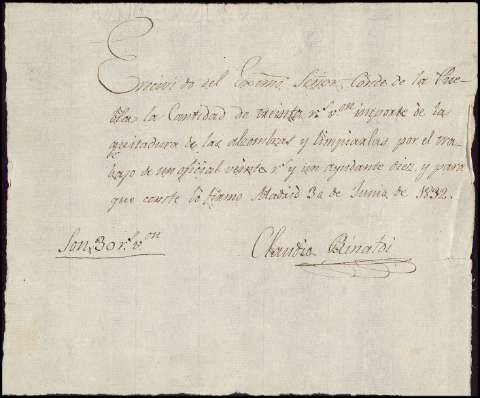 Erecivi do del Exᵐᵒ Señor Conde de la Pue-
bla la Cantidad de treinta rˢ vᵒⁿ importe de la
quitadura de las alombras y limpiarlas por el tra-
bajo de un oficial veinte rˢ y un ayudante diez y para
que coste lo firmo Madrid 30 de Junio de 1832.
Son 30 rˢ vᵒⁿ
Claudio Binaldi